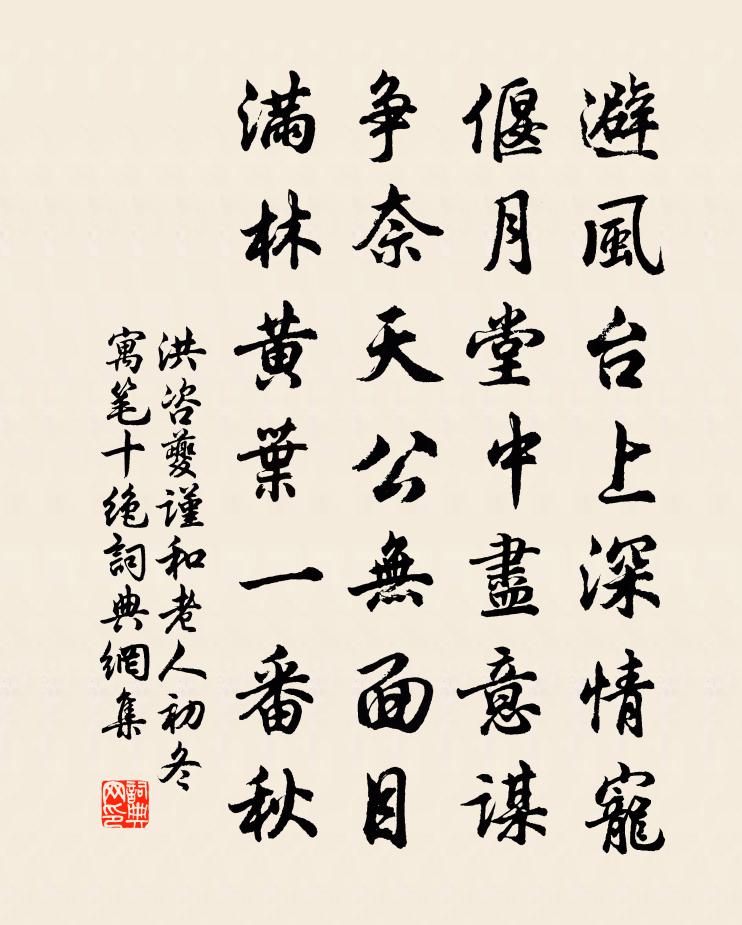 避風台上深情寵
偃月堂中盡意謀
争奈天公無面目
滿林黃葉一番秋
洪咨夔謹和老人初冬
寓笔十绝詞典網集
詞典网印